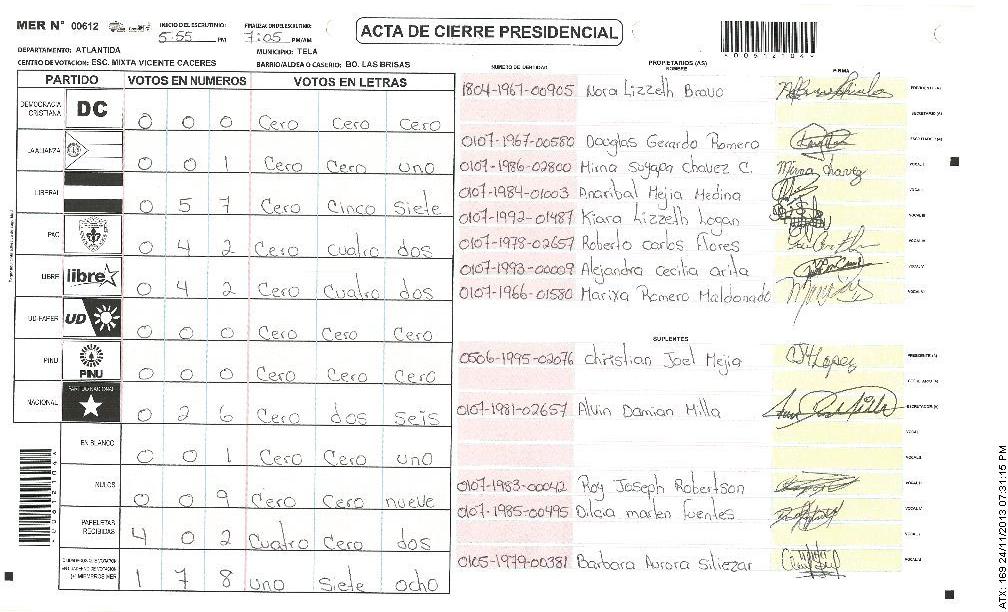 MER N° 00612
INICIO DEL ESCRUTINIO: 5:55 PM
FINALIZACION DEL ESCRUTINIO: 7:05 PM/AM
ACTA DE CIERRE PRESIDENCIAL
DEPARTAMENTO: ATLANTIDA
MUNICIPIO: TELA
CENTRO DE VOTACION: ESC. MIXTA VICENTE CACERES
BARRIO/ALDEA O CASERIO: BO. LAS BRISAS
PARTIDO VOTOS EN NUMEROS VOTOS EN LETRAS
DEMOCRACIA CRISTIANA DC 0 0 0 Cero Cero Cero
LA ALIANZA 0 0 1 Cero Cero uno
LIBERAL 0 5 7 Cero Cinco Siete
PAC 0 4 2 Cero cuatro dos
LIBRE libre 0 4 2 Cero Cuatro dos
UD-FAPER UD 0 0 0 Cero Cero Cero
PINU PINU 0 0 0 Cero Cero Cero
NACIONAL PARTIDO NACIONAL 0 2 6 Cero dos seis
EN BLANCO 0 0 1 Cero Cero uno
NULOS 0 0 9 Cero Cero nueve
PAPELETAS RECIBIDAS 4 0 2 Cuatro Cero dos
1 7 8 uno Siete ocho
NUMERO DE IDENTIDAD
PROPIETARIOS (AS)
NOMBRE
FIRMA
1804-1967-00905 Nora Lizzeth Bravo
0107-1967-00580 Douglas Gerardo Romero
0107-1986-02800 Mirna Suyapa Chavez C. Mirna Chavez
0107-1984-01003 Anaribal Mejia Medina
0107-1992-01487 Kiara Lizzeth Logan
0107-1978-02657 Roberto Carlos Flores
0107-1993-00009 Alejandra Cecilia arita
0107-1966-01580 Marixa Romero Maldonado
SUPLENTES
0506-1995-02076 Christian Joel Mejia
0107-1981-02657 Alvin Damian Milla
0107-1983-00042 Roy Joseph Robertson
0107-1985-00495 Dilcia marlen fuentes
0105-1979-00381 Barbara Aurora Siliezar
ATX: 169 24/11/2013 07:31:15 PM